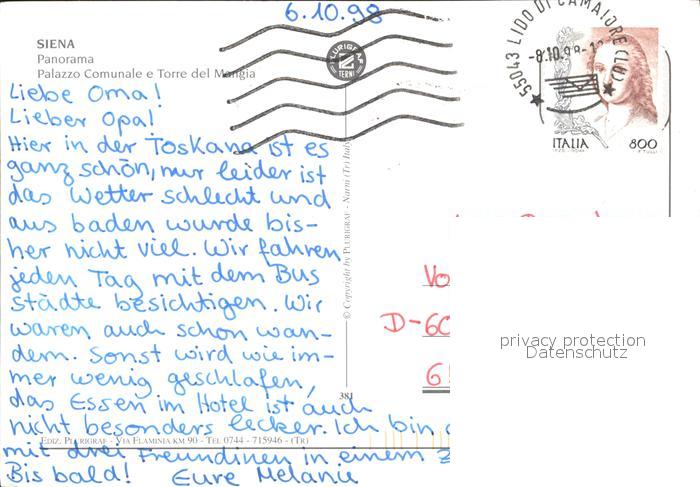 6.10.98
SIENA
Panorama
Palazzo Comunale e Torre del Mangia
PLURIGRAF
TERNI
55043 LIDO DI CAMAIORE (LU)
-8.10.98-
ITALIA 800
Liebe Oma!
Lieber Opa!
Hier in der Toskana ist es
ganz schön, nur leider ist
das Wetter schlecht und
aus baden wurde bis-
her nicht viel. Wir fahren
jeden Tag mit dem Bus
städte besichtigen. Wir
waren auch schon wan-
dern. Sonst wird wie im-
mer wenig geschlafen,
das Essen im Hotel ist auch
nicht besonders lecker. Ich bin
mit drei Freundinen in einem
Bis bald! Eure Melanie
© Copyright by PLURIGRAF - Narni (Tr) Italy
381
EDIZ. PLURIGRAF - VIA FLAMINIA KM 90 - TEL 0744 - 715946 - (TR)
D-60
privacy protection
Datenschutz